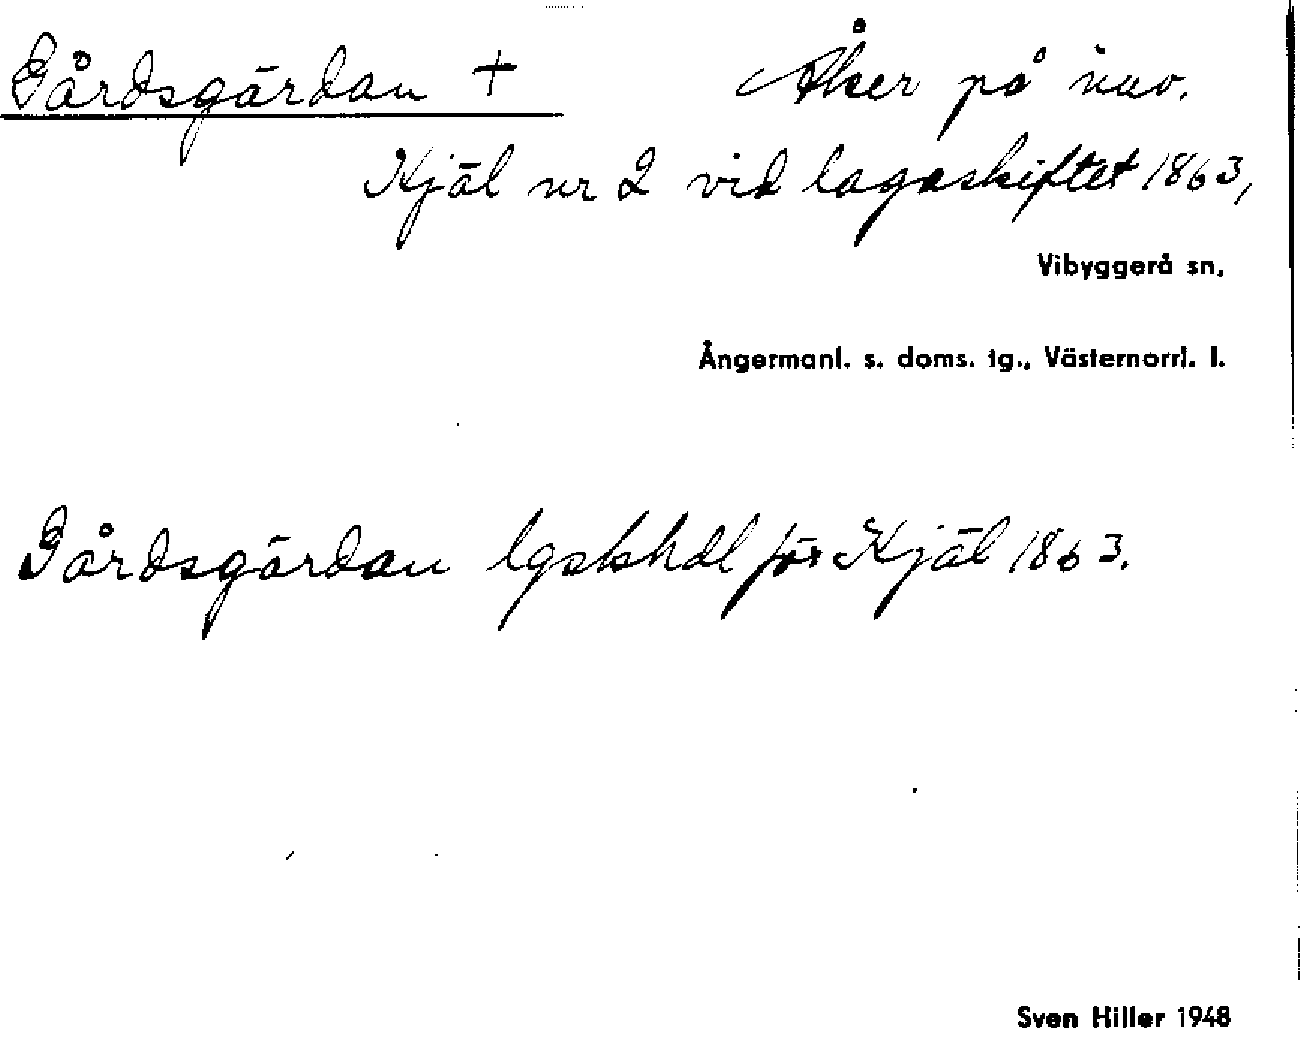 Gårdsgärdan + Åker på inv.
Kjäl nr 2 vid lagaskiftet 1863,
Vibyggerå sn,
Ångermanl. s. doms. tg., Västernorrl. l.
Gårdsgärdan lgskhdl för Kjäl 1863.
Sven Hiller 1948